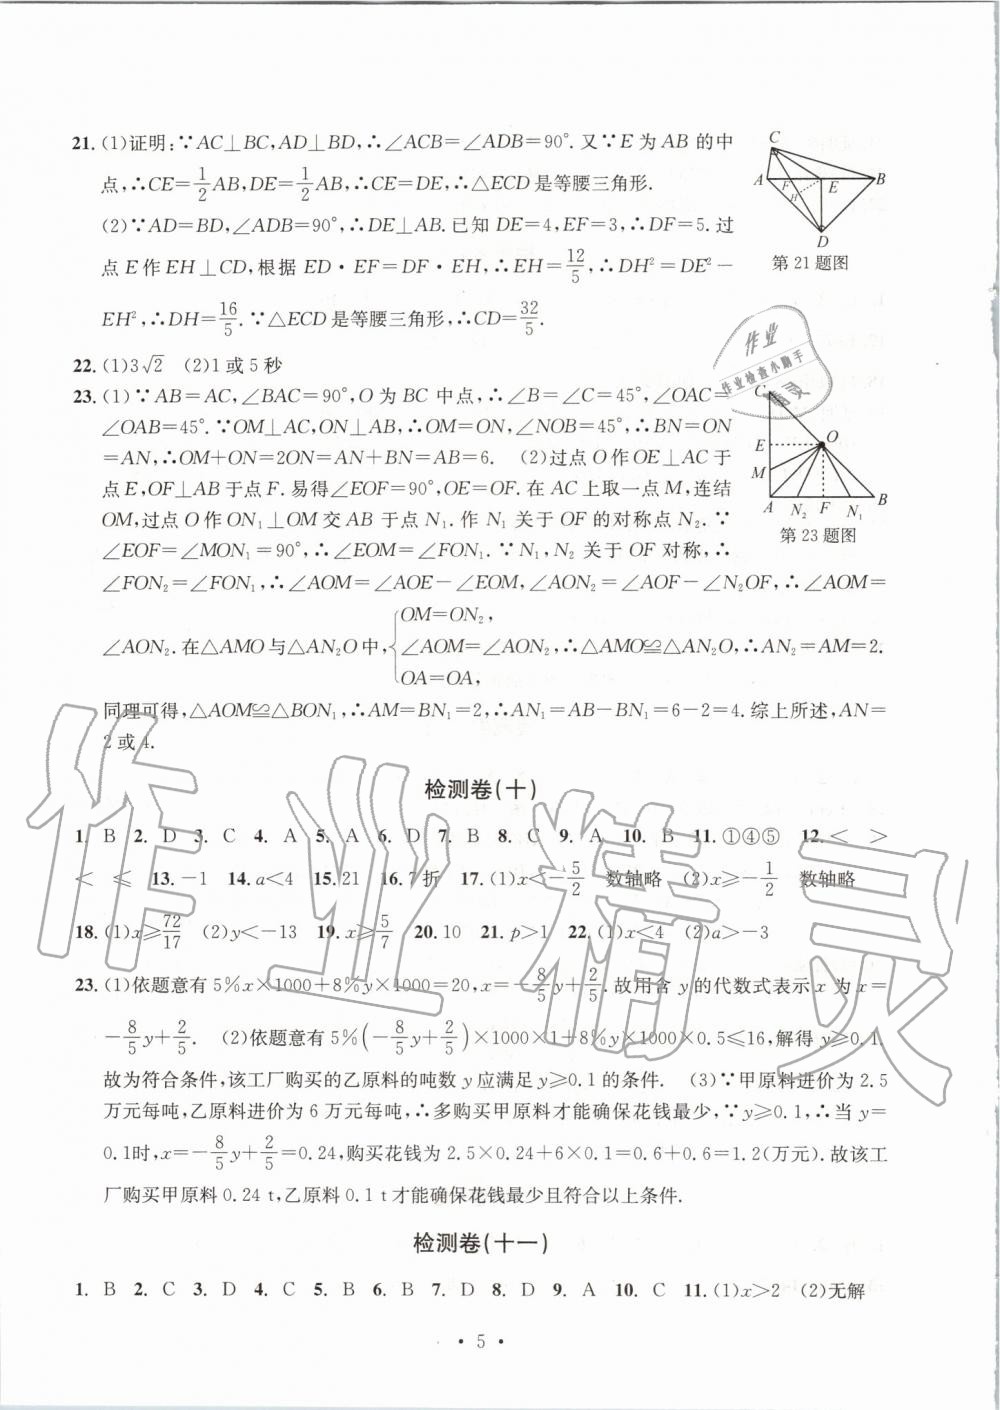 21. (1)证明:∵AC⊥BC,AD⊥BD,∴∠ACB=∠ADB=90°.又∵E为AB的中
点,∴CE=1/2AB,DE=1/2AB,∴CE=DE,∴△ECD是等腰三角形.
(2)∵AD=BD,∠ADB=90°,∴DE⊥AB.已知DE=4,EF=3,∴DF=5.过
点E作EH⊥CD,根据ED·EF=DF·EH,∴EH=12/5,∴DH²=DE²-
EH²,∴DH=16/5.∵△ECD是等腰三角形,∴CD=32/5.
C
A F E B
H
D
第21题图
22. (1)3√2 (2)1或5秒
23. (1)∵AB=AC,∠BAC=90°,O为BC中点,∴∠B=∠C=45°,∠OAC=
∠OAB=45°.∵OM⊥AC,ON⊥AB,∴OM=ON,∠NOB=45°,∴BN=ON
=AN,∴OM+ON=2ON=AN+BN=AB=6. (2)过点O作OE⊥AC于
点E,OF⊥AB于点F.易得∠EOF=90°,OE=OF.在AC上取一点M,连结
OM,过点O作ON₁⊥OM交AB于点N₁.作N₁关于OF的对称点N₂.∵
∠EOF=∠MON₁=90°,∴∠EOM=∠FON₁.∵N₁,N₂关于OF对称,∴
∠FON₂=∠FON₁,∴∠AOM=∠AOE-∠EOM,∠AON₂=∠AOF-∠N₂OF,∴∠AOM=
∠AON₂.在△AMO与△AN₂O中,{OM=ON₂,
∠AOM=∠AON₂,∴△AMO≌△AN₂O,∴AN₂=AM=2.
OA=OA,
同理可得,△AOM≌△BON₁,∴AM=BN₁=2,∴AN₁=AB-BN₁=6-2=4.综上所述,AN=
2或4.
作业
作业检查小助手
C
E O
M
A N₂ F N₁ B
第23题图
检测卷(十)
1. B 2. D 3. C 4. A 5. A 6. D 7. B 8. C 9. A 10. B 11. ①④⑤ 12. < >
< ≤ 13. -1 14. a<4 15. 21 16. 7折 17. (1)x<-5/2 数轴略 (2)x≥-1/2 数轴略
18. (1)x≥72/17 (2)y<-13 19. x≥5/7 20. 10 21. p>1 22. (1)x<4 (2)a>-3
23. (1)依题意有5%x×1000+8%y×1000=20,x=-8/5y+2/5.故用含y的代数式表示x为x=
-8/5y+2/5. (2)依题意有5%(-8/5y+2/5)×1000×1+8%y×1000×0.5≤16,解得y≥0.1.
故为符合条件,该工厂购买的乙原料的吨数y应满足y≥0.1的条件. (3)∵甲原料进价为2.5
万元每吨,乙原料进价为6万元每吨,∴多购买甲原料才能确保花钱最少,∵y≥0.1,∴当y=
0.1时,x=-8/5y+2/5=0.24,购买花钱为2.5×0.24+6×0.1=0.6+0.6=1.2(万元).故该工
厂购买甲原料0.24 t,乙原料0.1 t才能确保花钱最少且符合以上条件.
作业精灵
检测卷(十一)
1. B 2. C 3. D 4. C 5. B 6. B 7. D 8. D 9. A 10. C 11. (1)x>2 (2)无解
· 5 ·